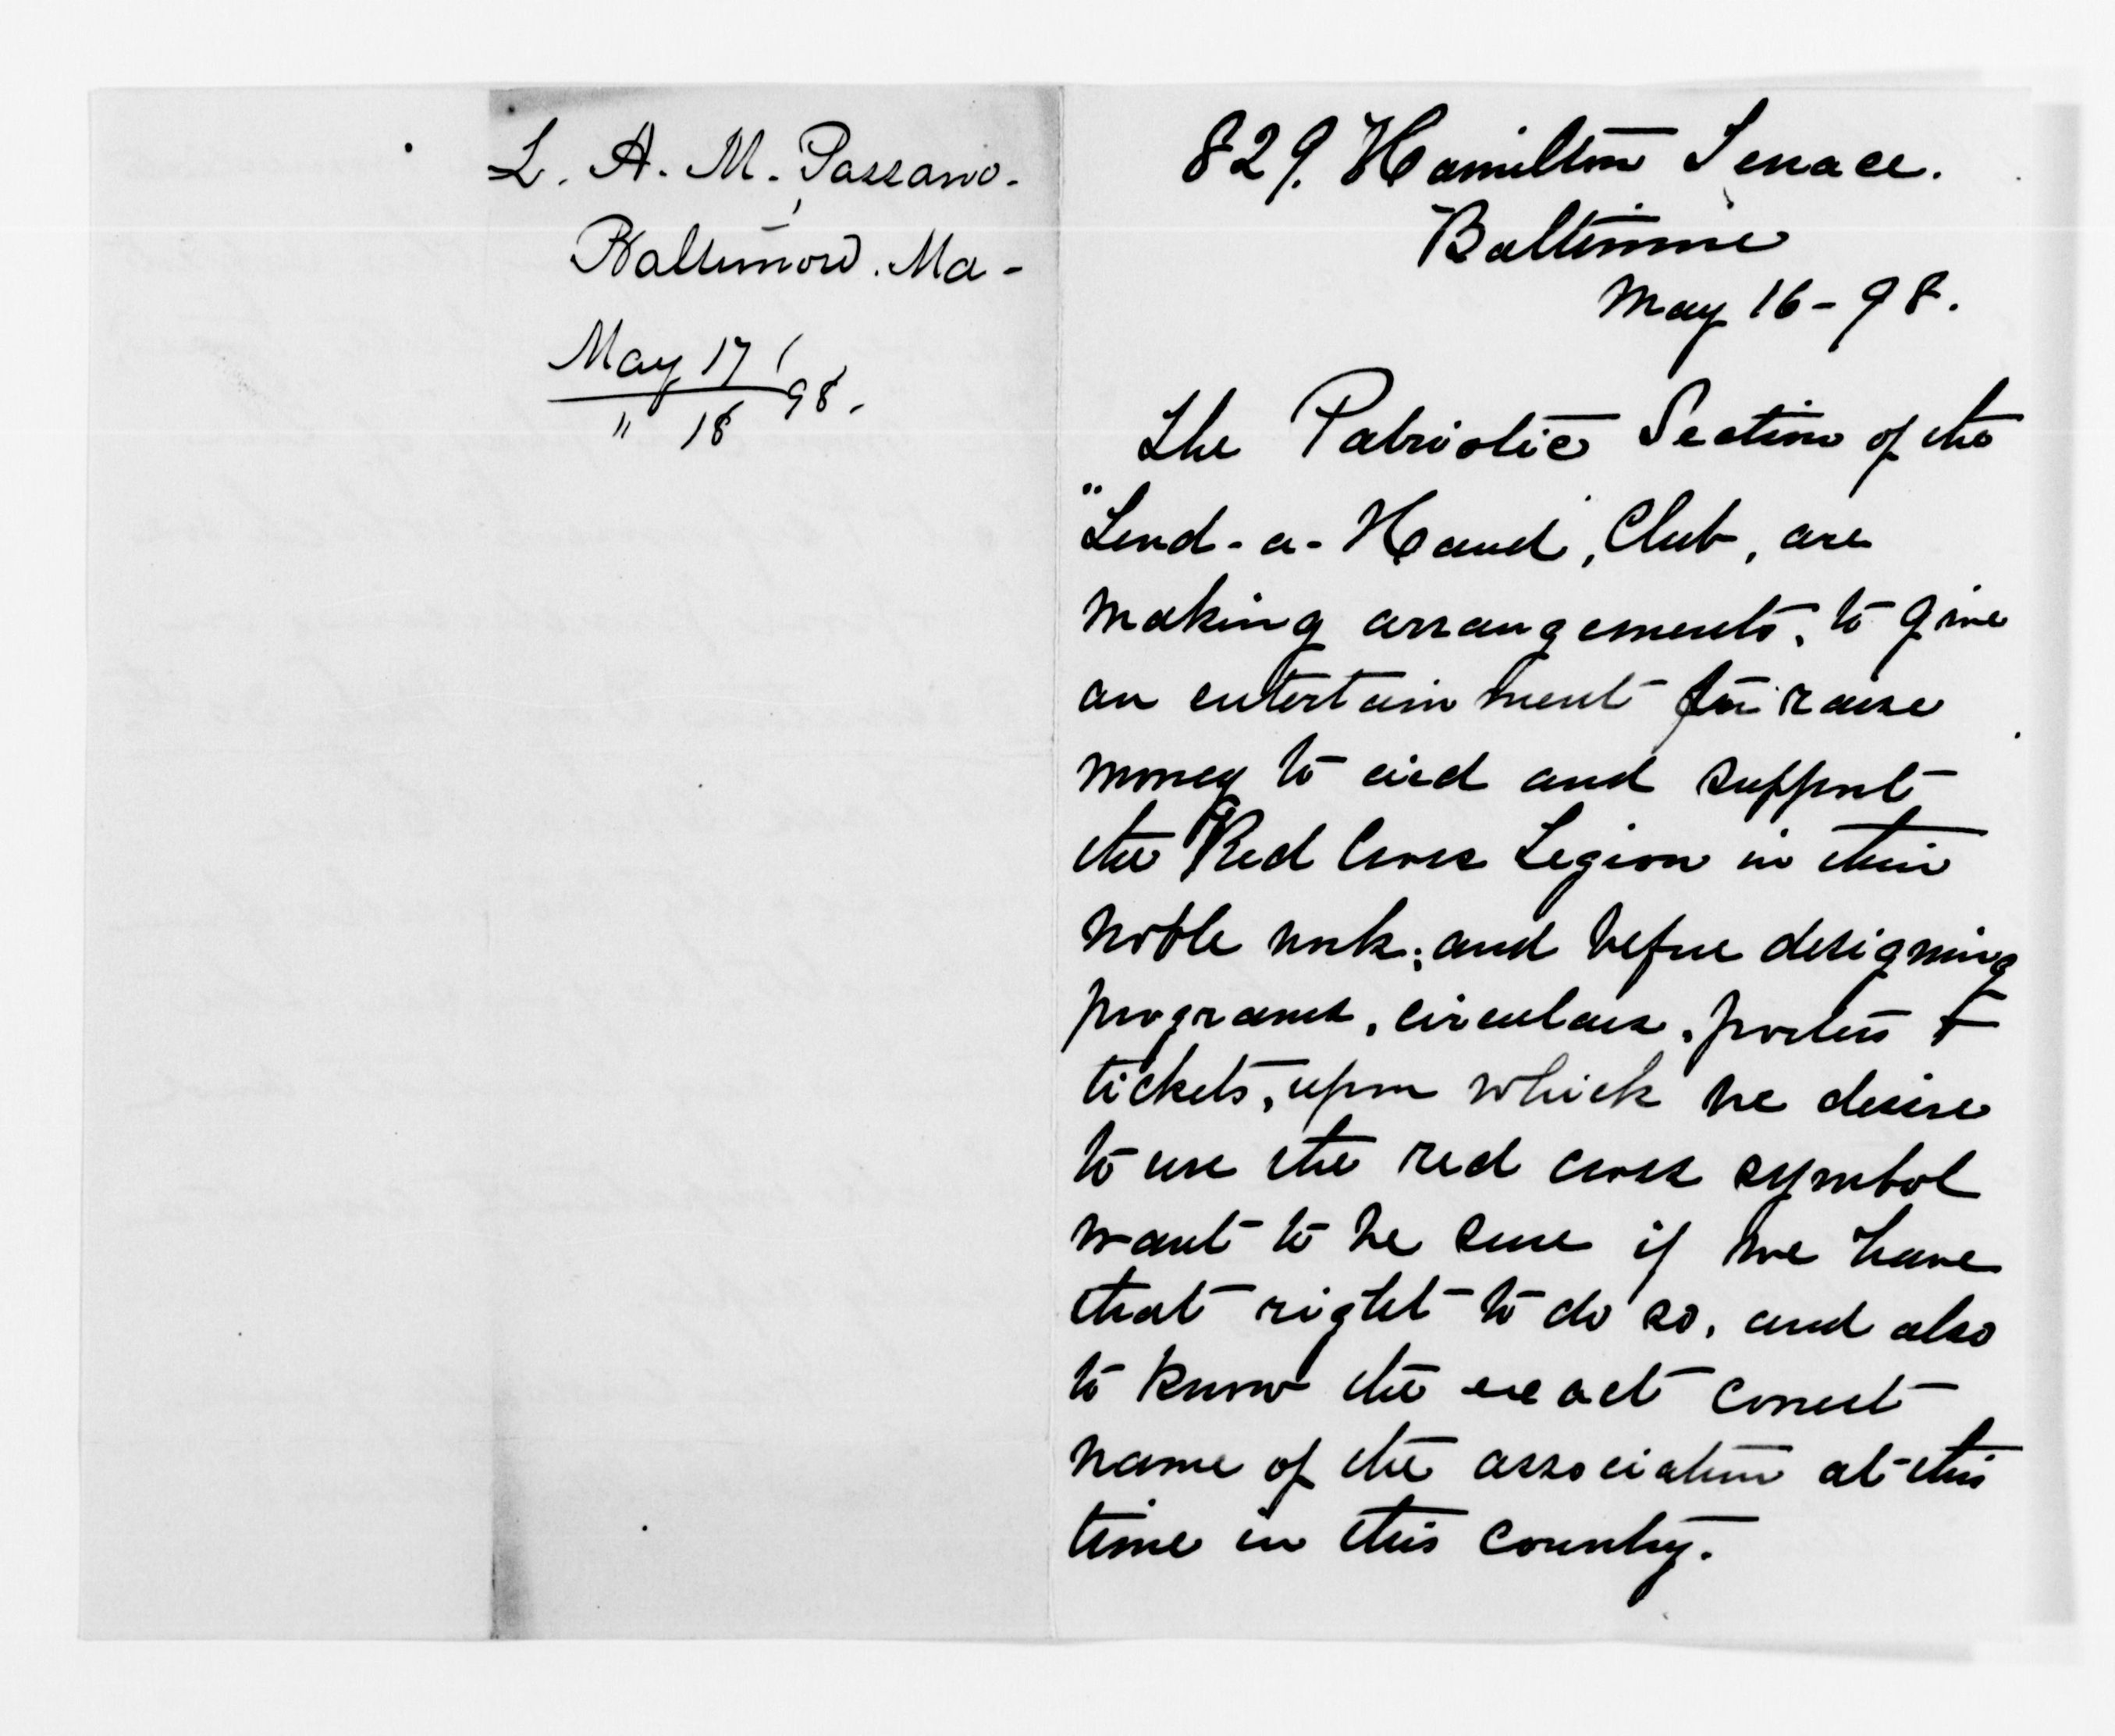 L. A. M. Passano.
Baltimore. Md -
May 17
" 18 98.
829. Hamilton Terrace.
Baltimore
May 16 - 98.
The Patriotic Section of the
"Lend-a-Hand, Club, are
making arrangements, to give
an entertainment to raise
money to aid and support
the Red Cross Legion in their
noble work; and before designing
programs, circulars, posters &
tickets, upon which we desire
to use the red cross symbol
want to be sure if we have
that right to do so, and also
to know the exact correct
name of the association at this
time in this country.